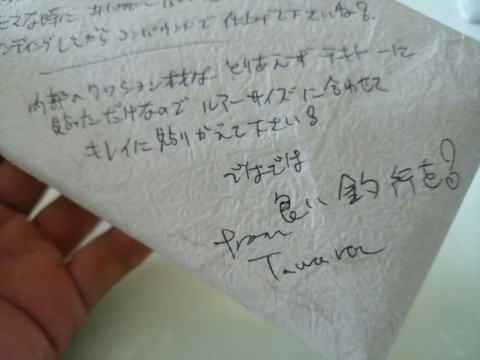 な時に
してから コンパウンドで 仕上げて下さいね。
内部のクッション材は とりあえず テキトーに
貼っただけなので ルアーサイズに合わせて
キレイに貼りかえて下さい。
ではでは
良い釣行を。
from